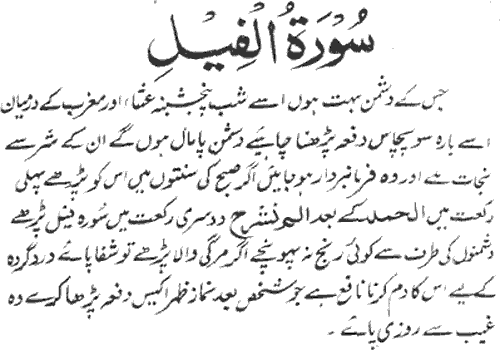 سُوْرَةُ الْفِيْلِ
جس کے دشمن بہت ہوں اسے شب پنجشنبہ عشاء اور مغرب کے درمیان
اسے بارہ سو پچاس دفعہ پڑھنا چاہیئے دشمن پامال ہوں گے ان کے شر سے
نجات ہے اور وہ فرمانبردار ہو جائیں اگر صبح کی سنتوں میں اس کو پڑھے پہلی
رکعت میں الحمد کے بعد الم نشرح دوسری رکعت میں سورہ فیل پڑھے
دشمنوں کی طرف سے کوئی رنج نہ پہونچے اگر مرگی والا پڑھے تو شفا پائے درد گردہ
کے لیے اس کا دم کرنا نافع ہے جو شخص بعد نماز ظہر اکیس دفعہ پڑھا کرے وہ
غیب سے روزی پائے ۔